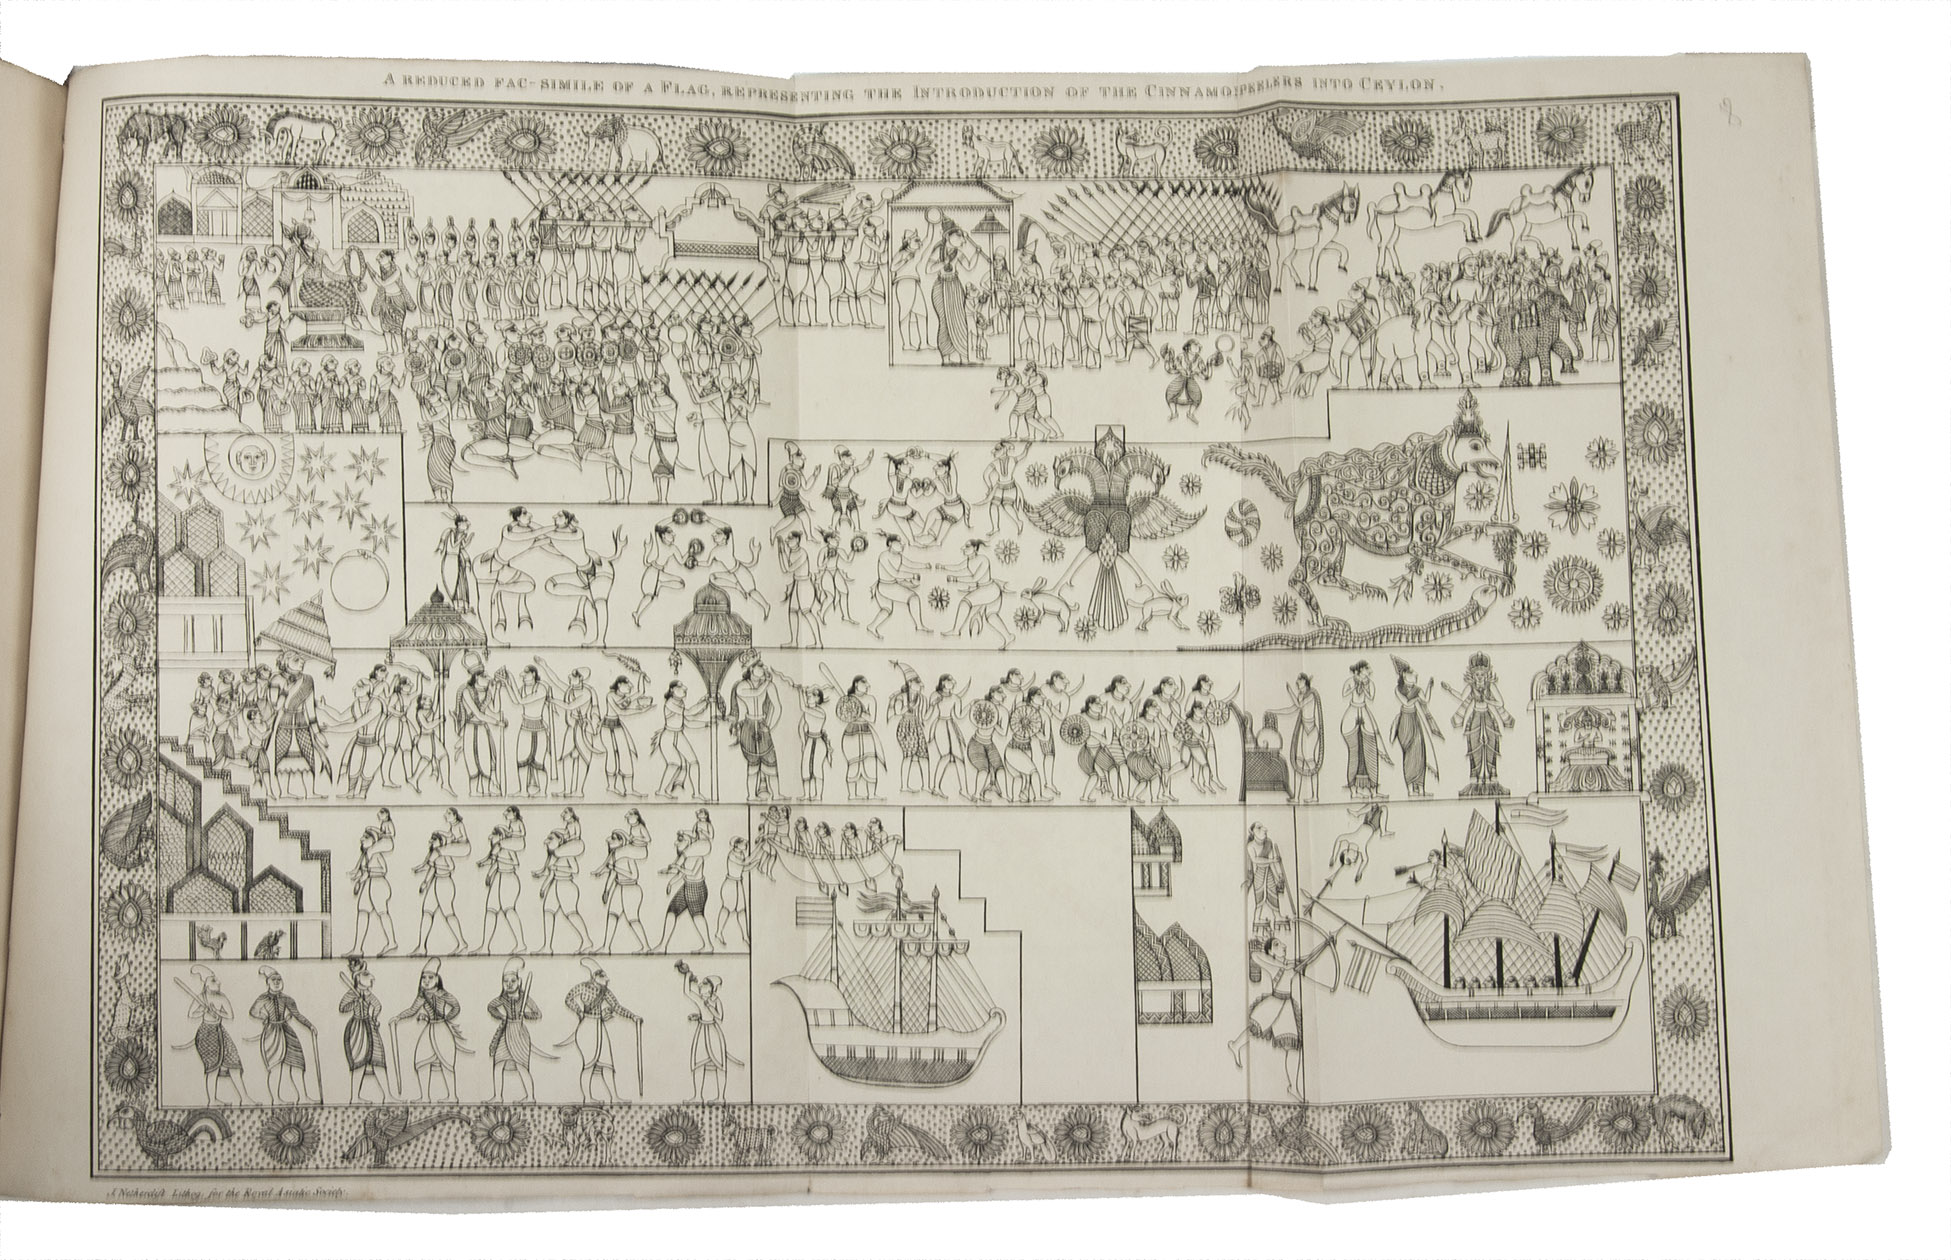 A REDUCED FAC-SIMILE OF A FLAG, REPRESENTING THE INTRODUCTION OF THE CINNAMON PEELERS INTO CEYLON.
J. Netherclift Lithog. for the Royal Asiatic Society.